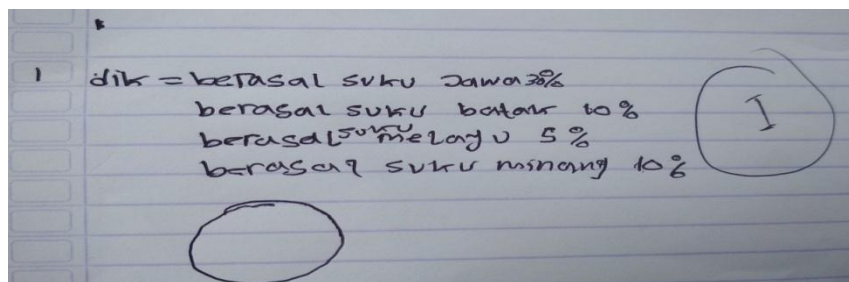 1 dik = berasal suku Jawa 30%
berasal suku batak 10%
berasal suku melayu 5%
berasal suku minang 10%
I